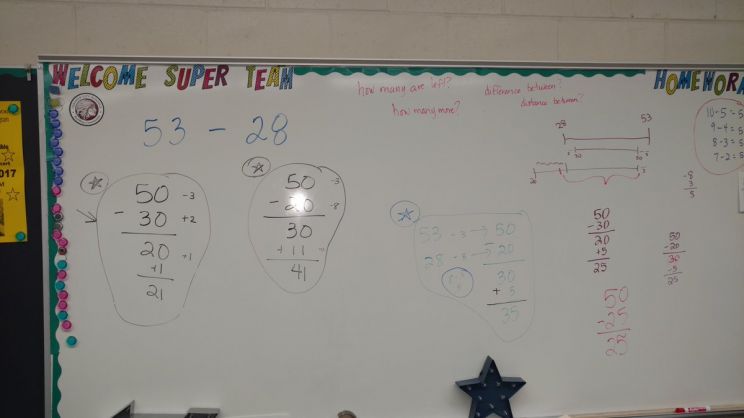 WELCOME SUPER TEAM
HOMEWOR
how many are left?
how many more?
difference between?
distance between?
53 - 28
50 -3
- 30 +2
20 +1
+1
21
50 -3
- 20 -8
30
+ 11
41
53 -3 → 50
28 -8 → - 20
30
+ 5
35
28 53
50
- 30
20
+ 5
25
50
- 20
30
- 5
25
50
- 25
25
-8
3
5
10 - 5 = 5
9 - 4 = 5
8 - 3 = 5
7 - 2 = 5
2017